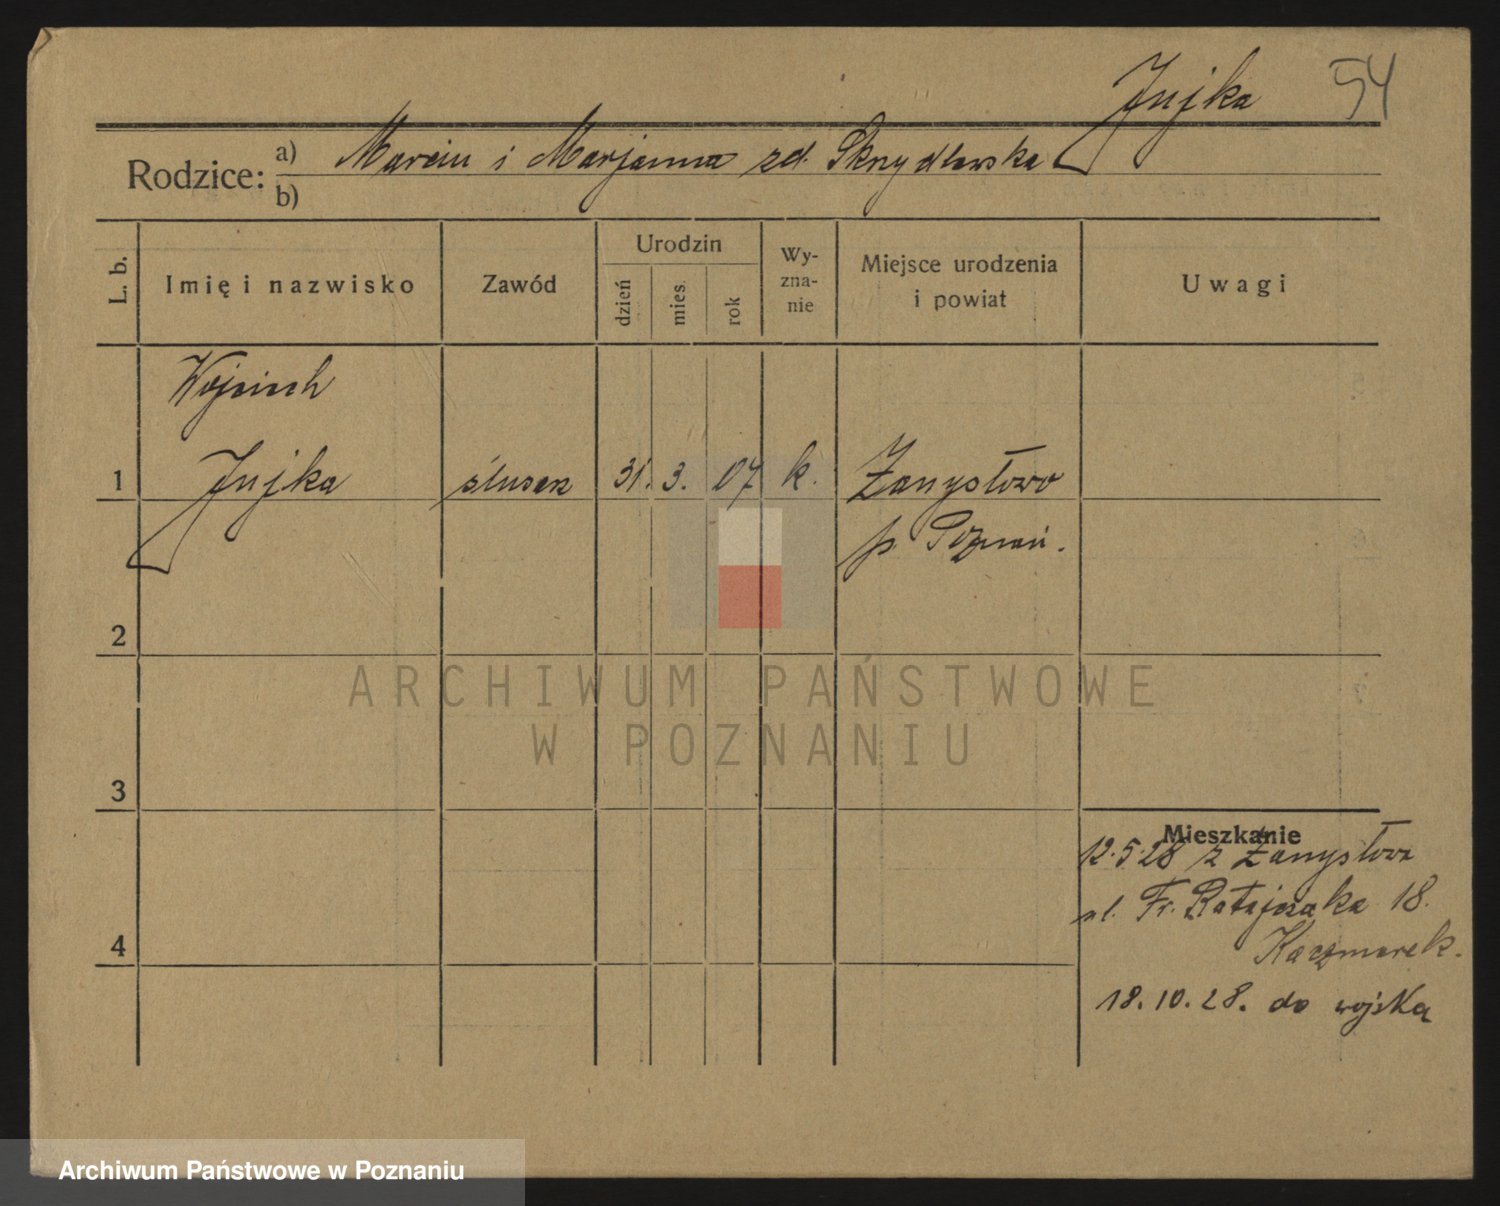 Jujka 54
Rodzice: a) Marcin i Marjanna zd. Skrzydlewska
b)
L. b. Imię i nazwisko Zawód Urodzin dzień mies. rok Wy-zna-nie Miejsce urodzenia i powiat Uwagi
Wojciech
1 Jujka ślusarz 31. 3. 07 k. Żanysłowo
p Poznań.
2
ARCHIWUM PAŃSTWOWE
W POZNANIU
3
Mieszkanie
12.5.28 z Żanysłowa
ul. Fr. Ratajczaka 18.
4 Kaczmarek.
18.10.28. do wojska
Archiwum Państwowe w Poznaniu